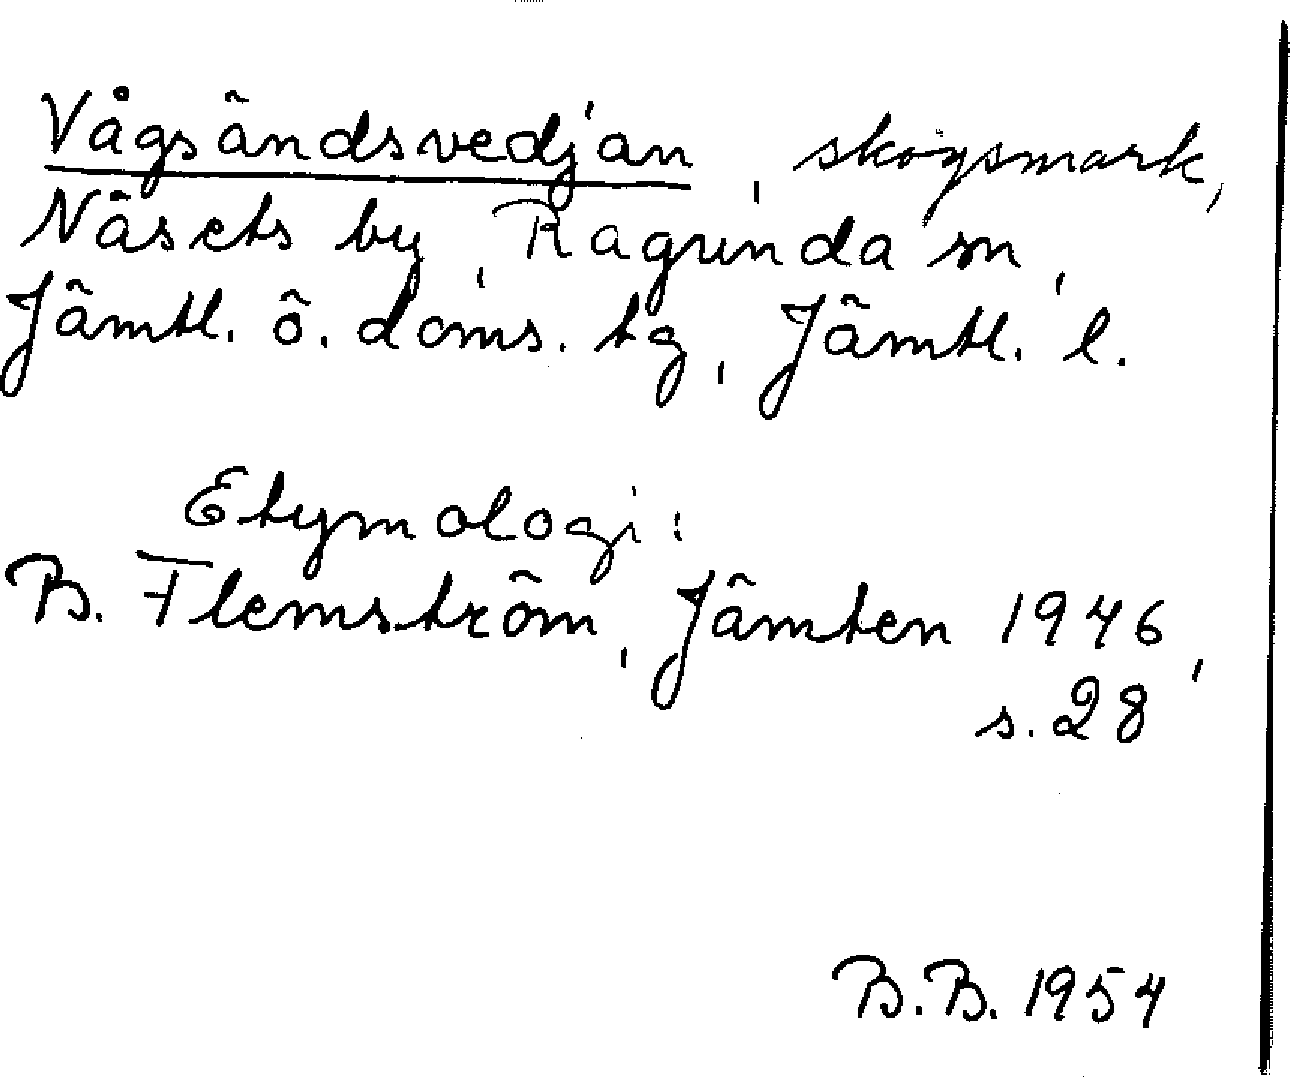 Vågsändsvedjan, skogsmark,
Näsets by, Ragunda sn,
Jämtl. ö. doms. tg, Jämtl. l.
Etymologi:
B. Flemström, Jämten 1946,
s. 28
B.B. 1954